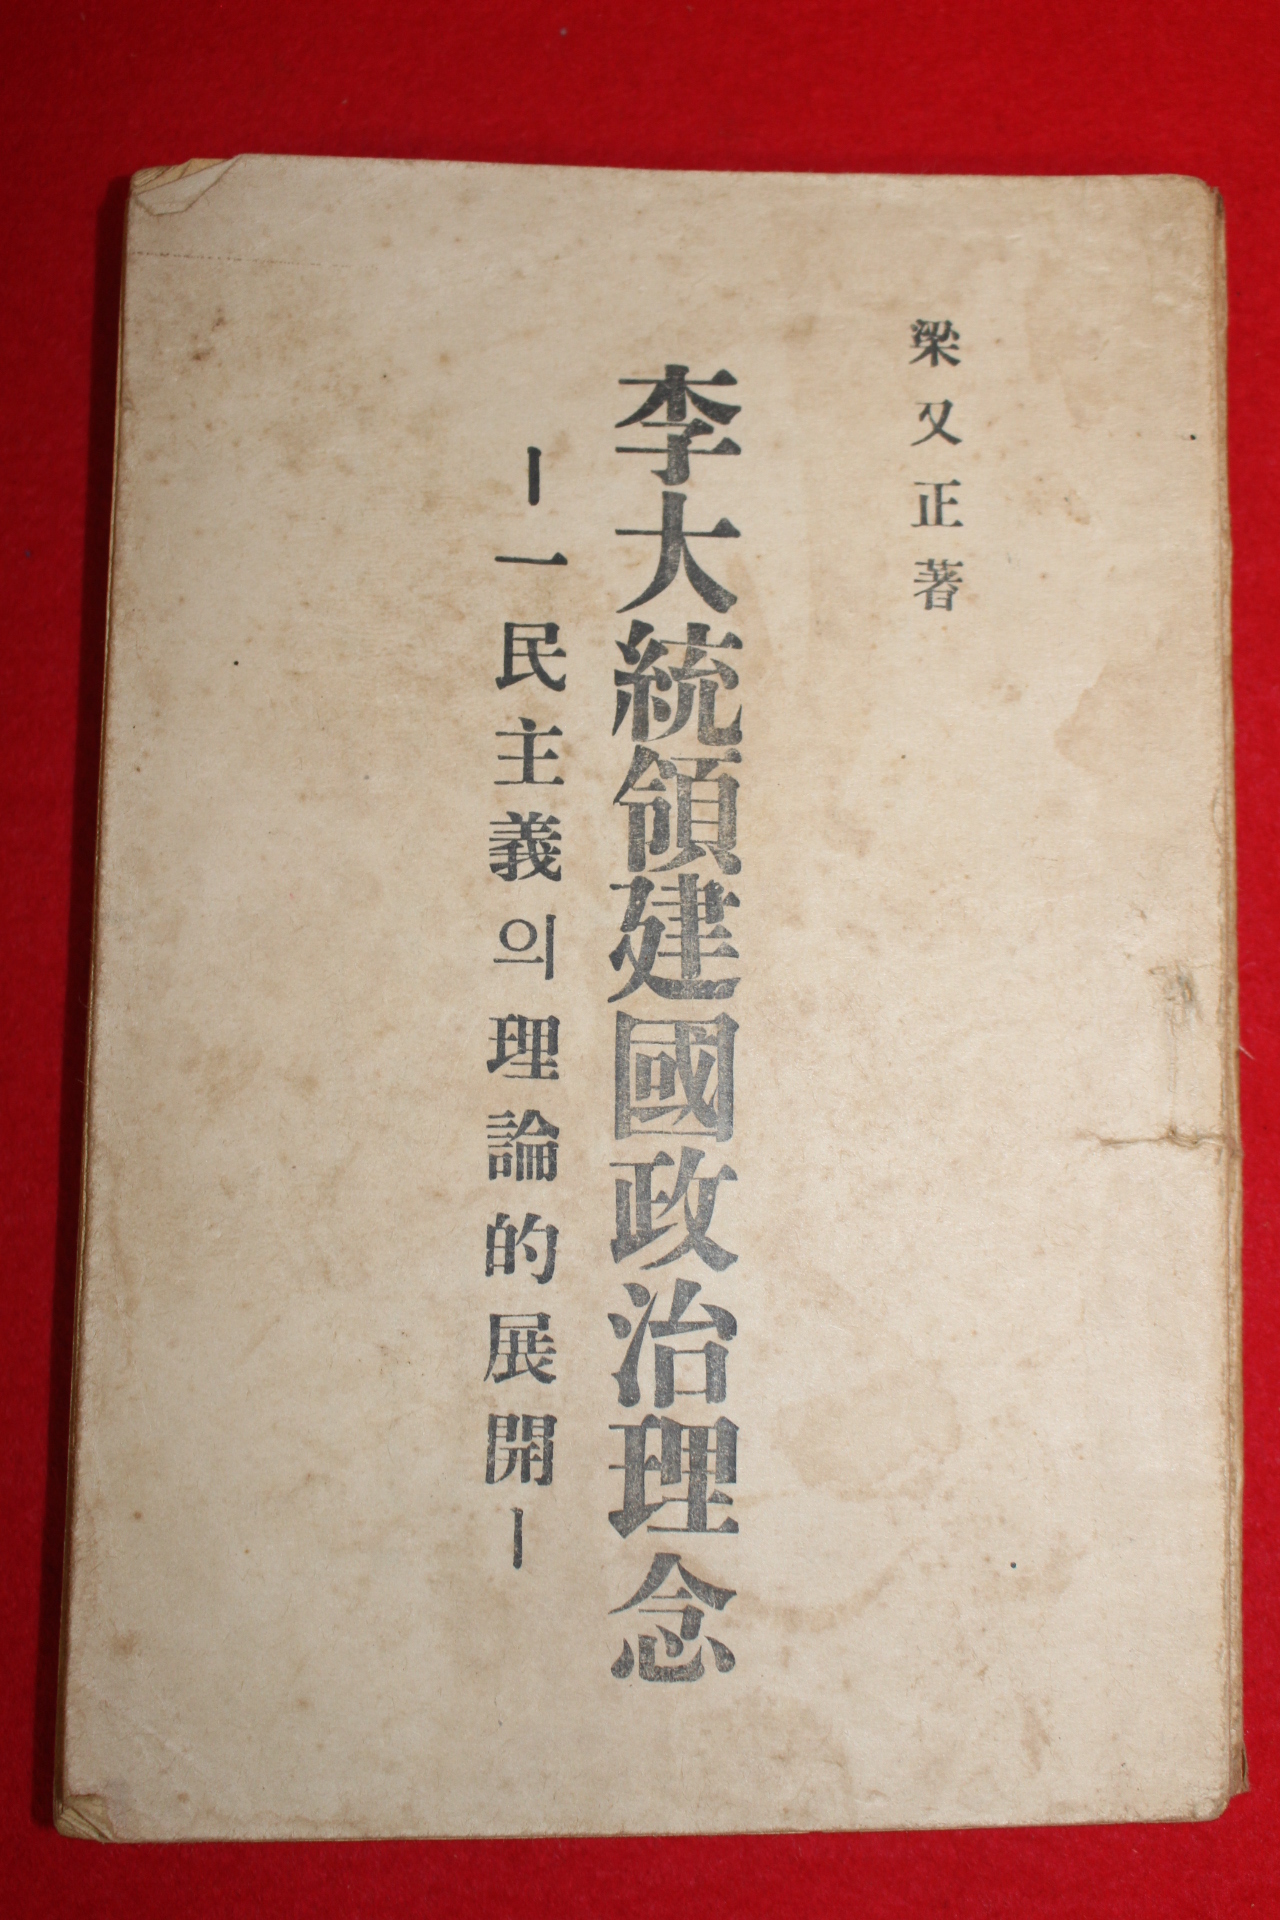 梁又正著
李大統領建國政治理念
ー一民主義의理論的展開ー